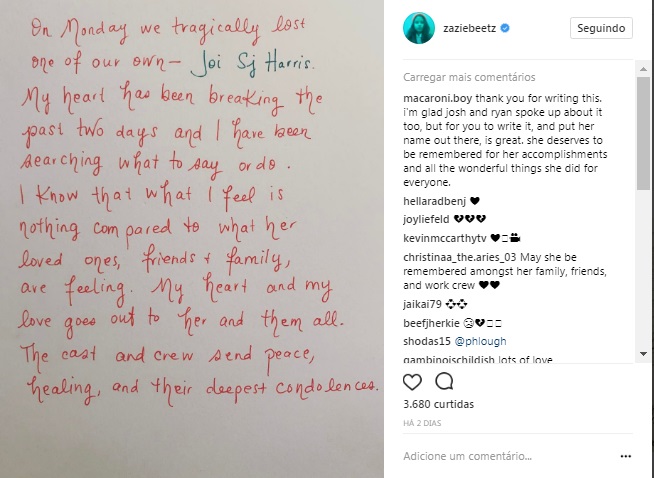 On Monday we tragically lost
one of our own – Joi Sj Harris.
My heart has been breaking the
past two days and I have been
searching what to say or do.
I know that what I feel is
nothing compared to what her
loved ones, friends + family,
are feeling. My heart and my
love goes out to her and them all.
The cast and crew send peace,
healing, and their deepest condolences.
zaziebeetz
Seguindo
Carregar mais comentários
macaroni.boy thank you for writing this.
i'm glad josh and ryan spoke up about it
too, but for you to write it, and put her
name out there, is great. she deserves to
be remembered for her accomplishments
and all the wonderful things she did for
everyone.
hellaradbenj ♥
joyliefeld 💔💔💔
kevinmccarthytv
christinaa_the.aries_03 May she be
remembered amongst her family, friends,
and work crew ♥♥
jaikai79
beefjherkie
shodas15 @phlough
gambinoischildish lots of love
3.680 curtidas
HÁ 2 DIAS
Adicione um comentário...